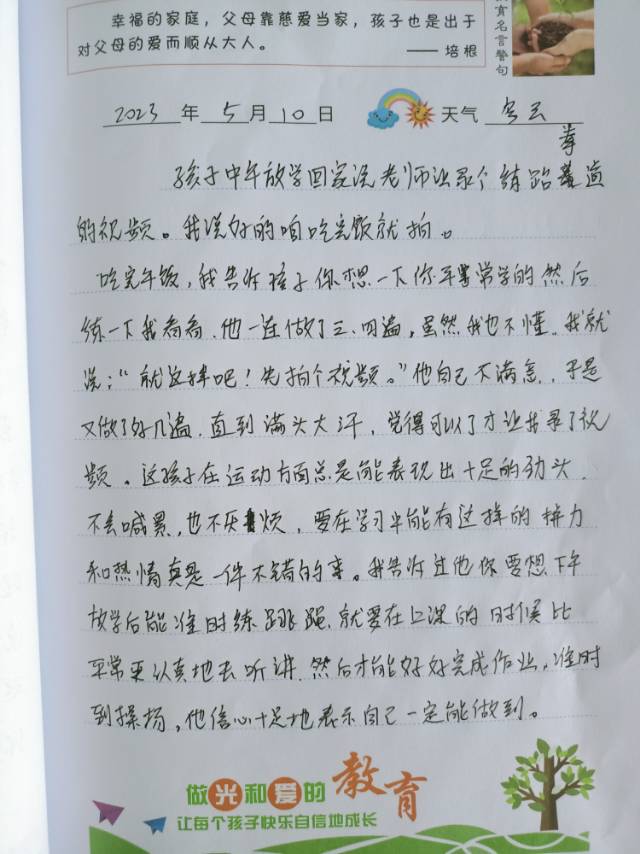 幸福的家庭，父母靠慈爱当家，孩子也是出于
对父母的爱而顺从大人。 —— 培根
育名言警句
2023 年 5 月 10 日 天气 多云
孩子中午放学回家说老师让录个练跆拳道
的视频。我说好的咱吃完饭就拍。
吃完午饭，我告诉孩子你想一下你平常学的然后
练一下我看看.他一连做了三.四遍，虽然我也不懂.我就
说："就这样吧！先拍个视频。"他自己不满意.于是
又做了好几遍.直到满头大汗，觉得可以了才让我录了视
频。这孩子在运动方面总是能表现出十足的劲头.
不会喊累，也不厌烦，要在学习中能有这样的拼力
和热情真是一件不错的事。我告诉过他你要想下午
放学后能准时练跳绳.就要在上课的时候比
平常更认真地去听讲.然后才能好好完成作业，准时
到操场，他信心十足地表示自己一定能做到。
做光和爱的教育
让每个孩子快乐自信地成长